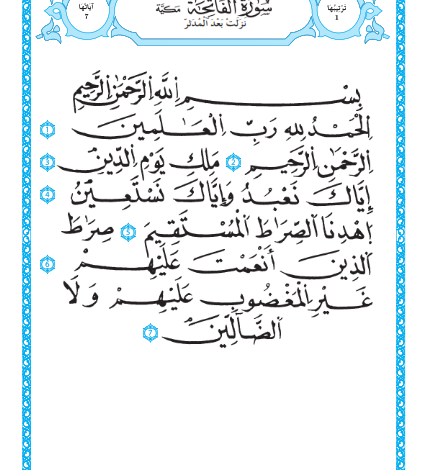 ترتيبها
1
سُورَةُ الْفَاتِحَةِ مَكِّيَّة
نزلت بعد المدثر
آياتها
7
بِسْمِ اِللَّهِ اِلرَّحْمَٰنِ اِلرَّحِيمِ
اِلْحَمْدُ لِلهِ رَبِّ اِلْعَٰلَمِينَ 1
اَلرَّحْمَٰنِ اِلرَّحِيمِ 2 مَلِكِ يَوْمِ اِلدِّينِ 3
إِيَّاكَ نَعْبُدُ وَإِيَّاكَ نَسْتَعِينُ 4
اِهْدِنَا اَلصِّرَٰطَ اَلْمُسْتَقِيمَ 5 صِرَٰطَ
اَلذِينَ أَنْعَمْتَ عَلَيْهِمْ 6
غَيْرِ اِلْمَغْضُوبِ عَلَيْهِمْ وَلَا
اَلضَّآلِّينَ 7